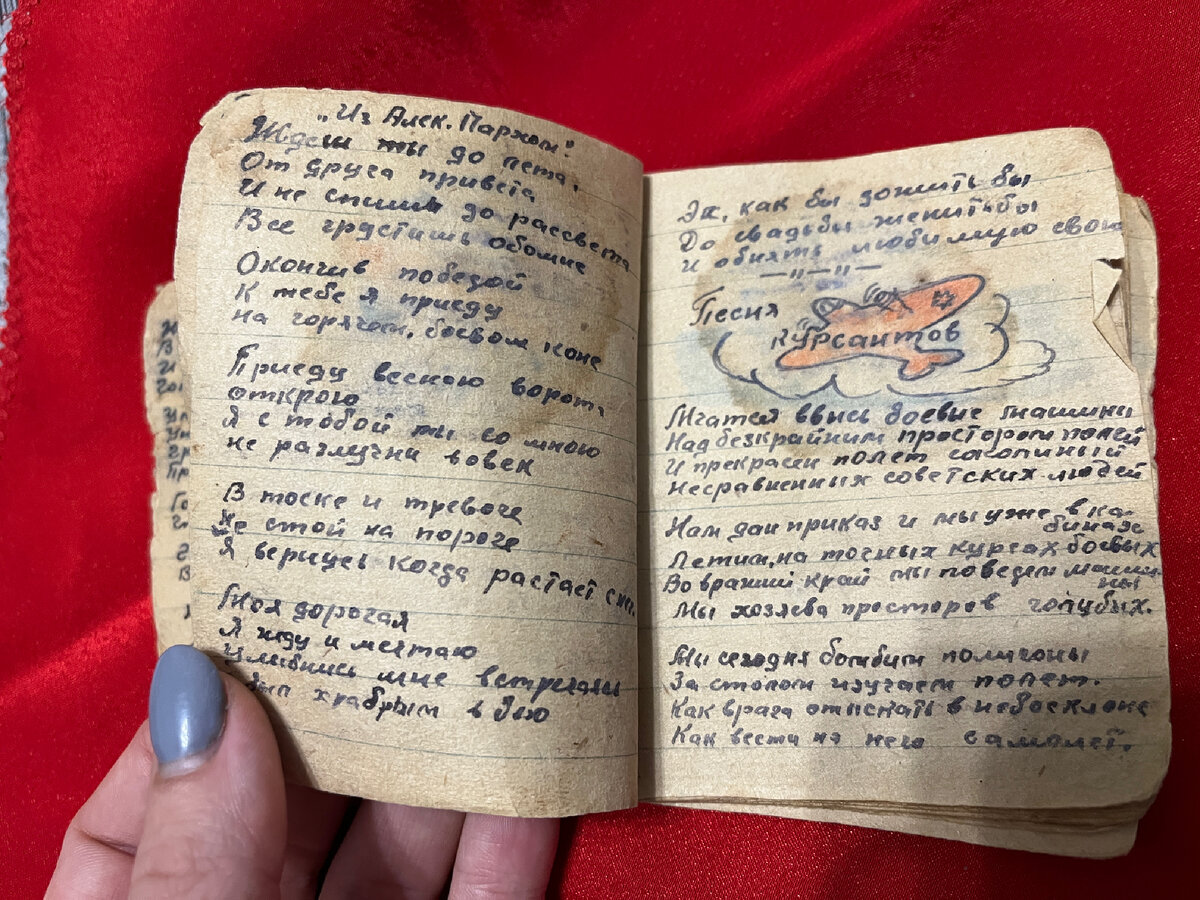 „Из Алек. Пархом."
Ждеш ты до лета,
От друга привета
И не спишь до рассвета
Все грустишь обомне
Окончив победой
К тебе я приеду
на горячем, боевом коне
Приеду весною ворота
открою
Я с тобой ты со мною
не разлучни вовек
В тоске и тревоге
Не стой на пороге
Я вернусь когда растает снег.
Моя дорогая
Я жду и мечтаю
Улыбнись мне встречая
был храбрым в бою
Эх, как бы дожить бы
До свадьбы женитьбы
И обнять любимую свою
—„—„—
Песня
курсантов
Мчатся ввысь боевые машины
Над безкрайним простором полей
И прекрасен полет соколиный
Несравненных советских людей
Нам дан приказ и мы уже в ка-
бинах
Летим, на точных курсах боевых
Во вражий край мы поведем маши-
ны
Мы хозяева просторов голубых.
Мы сегодня бомбим полигоны
За столом изучаем полет.
Как врага отыскать в небосклоне
Как вести на него самолет.